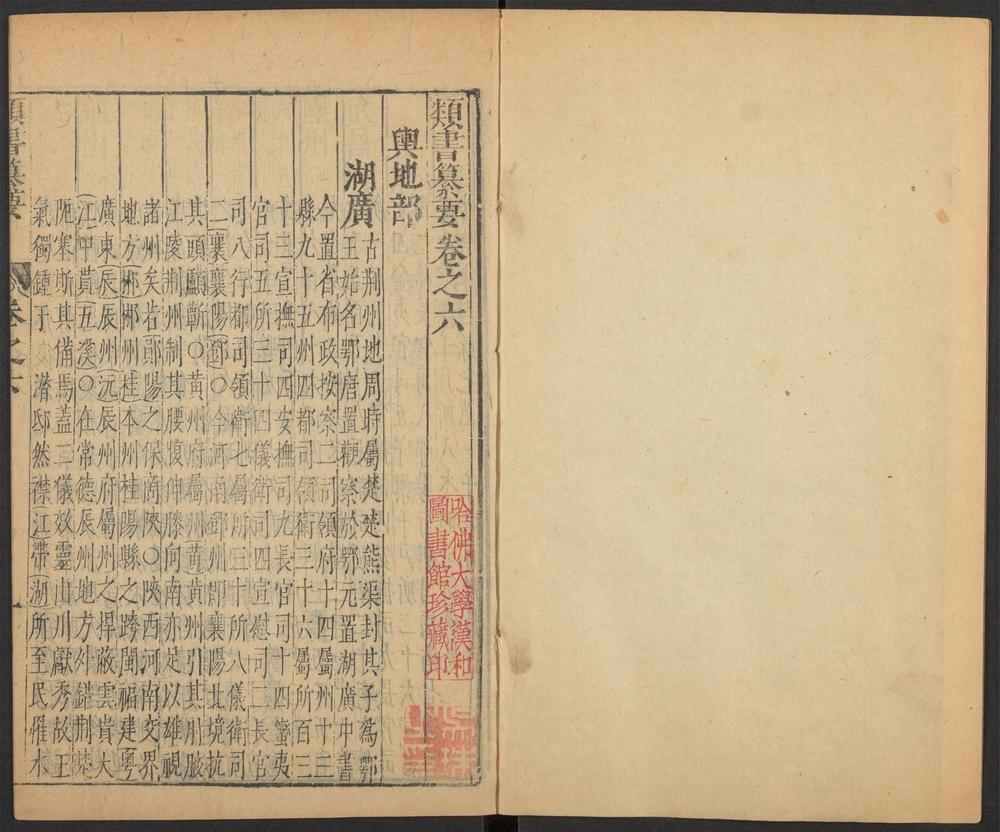 類書纂要卷之六
輿地部
湖廣
古荆州地周時屬楚楚熊渠封其子爲鄂
王始名鄂唐置觀察於鄂元置湖廣中書
今置省布政按察二司領府十四屬州十三
縣九十五州四都司領衛三十六屬所百三
十三宣撫司四安撫司九長官司十四蠻夷
官司五所三十四儀衛司四宣慰司二長官
司八行都司領衛七屬所三十所八儀衛司
二襄襄陽鄧○今河南鄧州即襄陽北境抗
其頭顱蘄○黃州府屬州黃黃州引其肘腋
江陵荆州制其腰腹伸膝向南亦足以雄視
諸州矣若鄖陽之保商陝○陝西河南交界
地方郴郴州桂本州桂陽縣之跨閩福建粵
廣東辰辰州沅辰州府屬州之捍蔽雲貴大
江中貫五溪○在常德辰州地方外錯荆楚
阨塞斯其備焉蓋二儀效靈山川獻秀故王
氣獨鍾于潛邸然襟江帶湖所至民罹水
類書纂要
卷之六
一
哈佛大學漢和
圖書館珍藏印